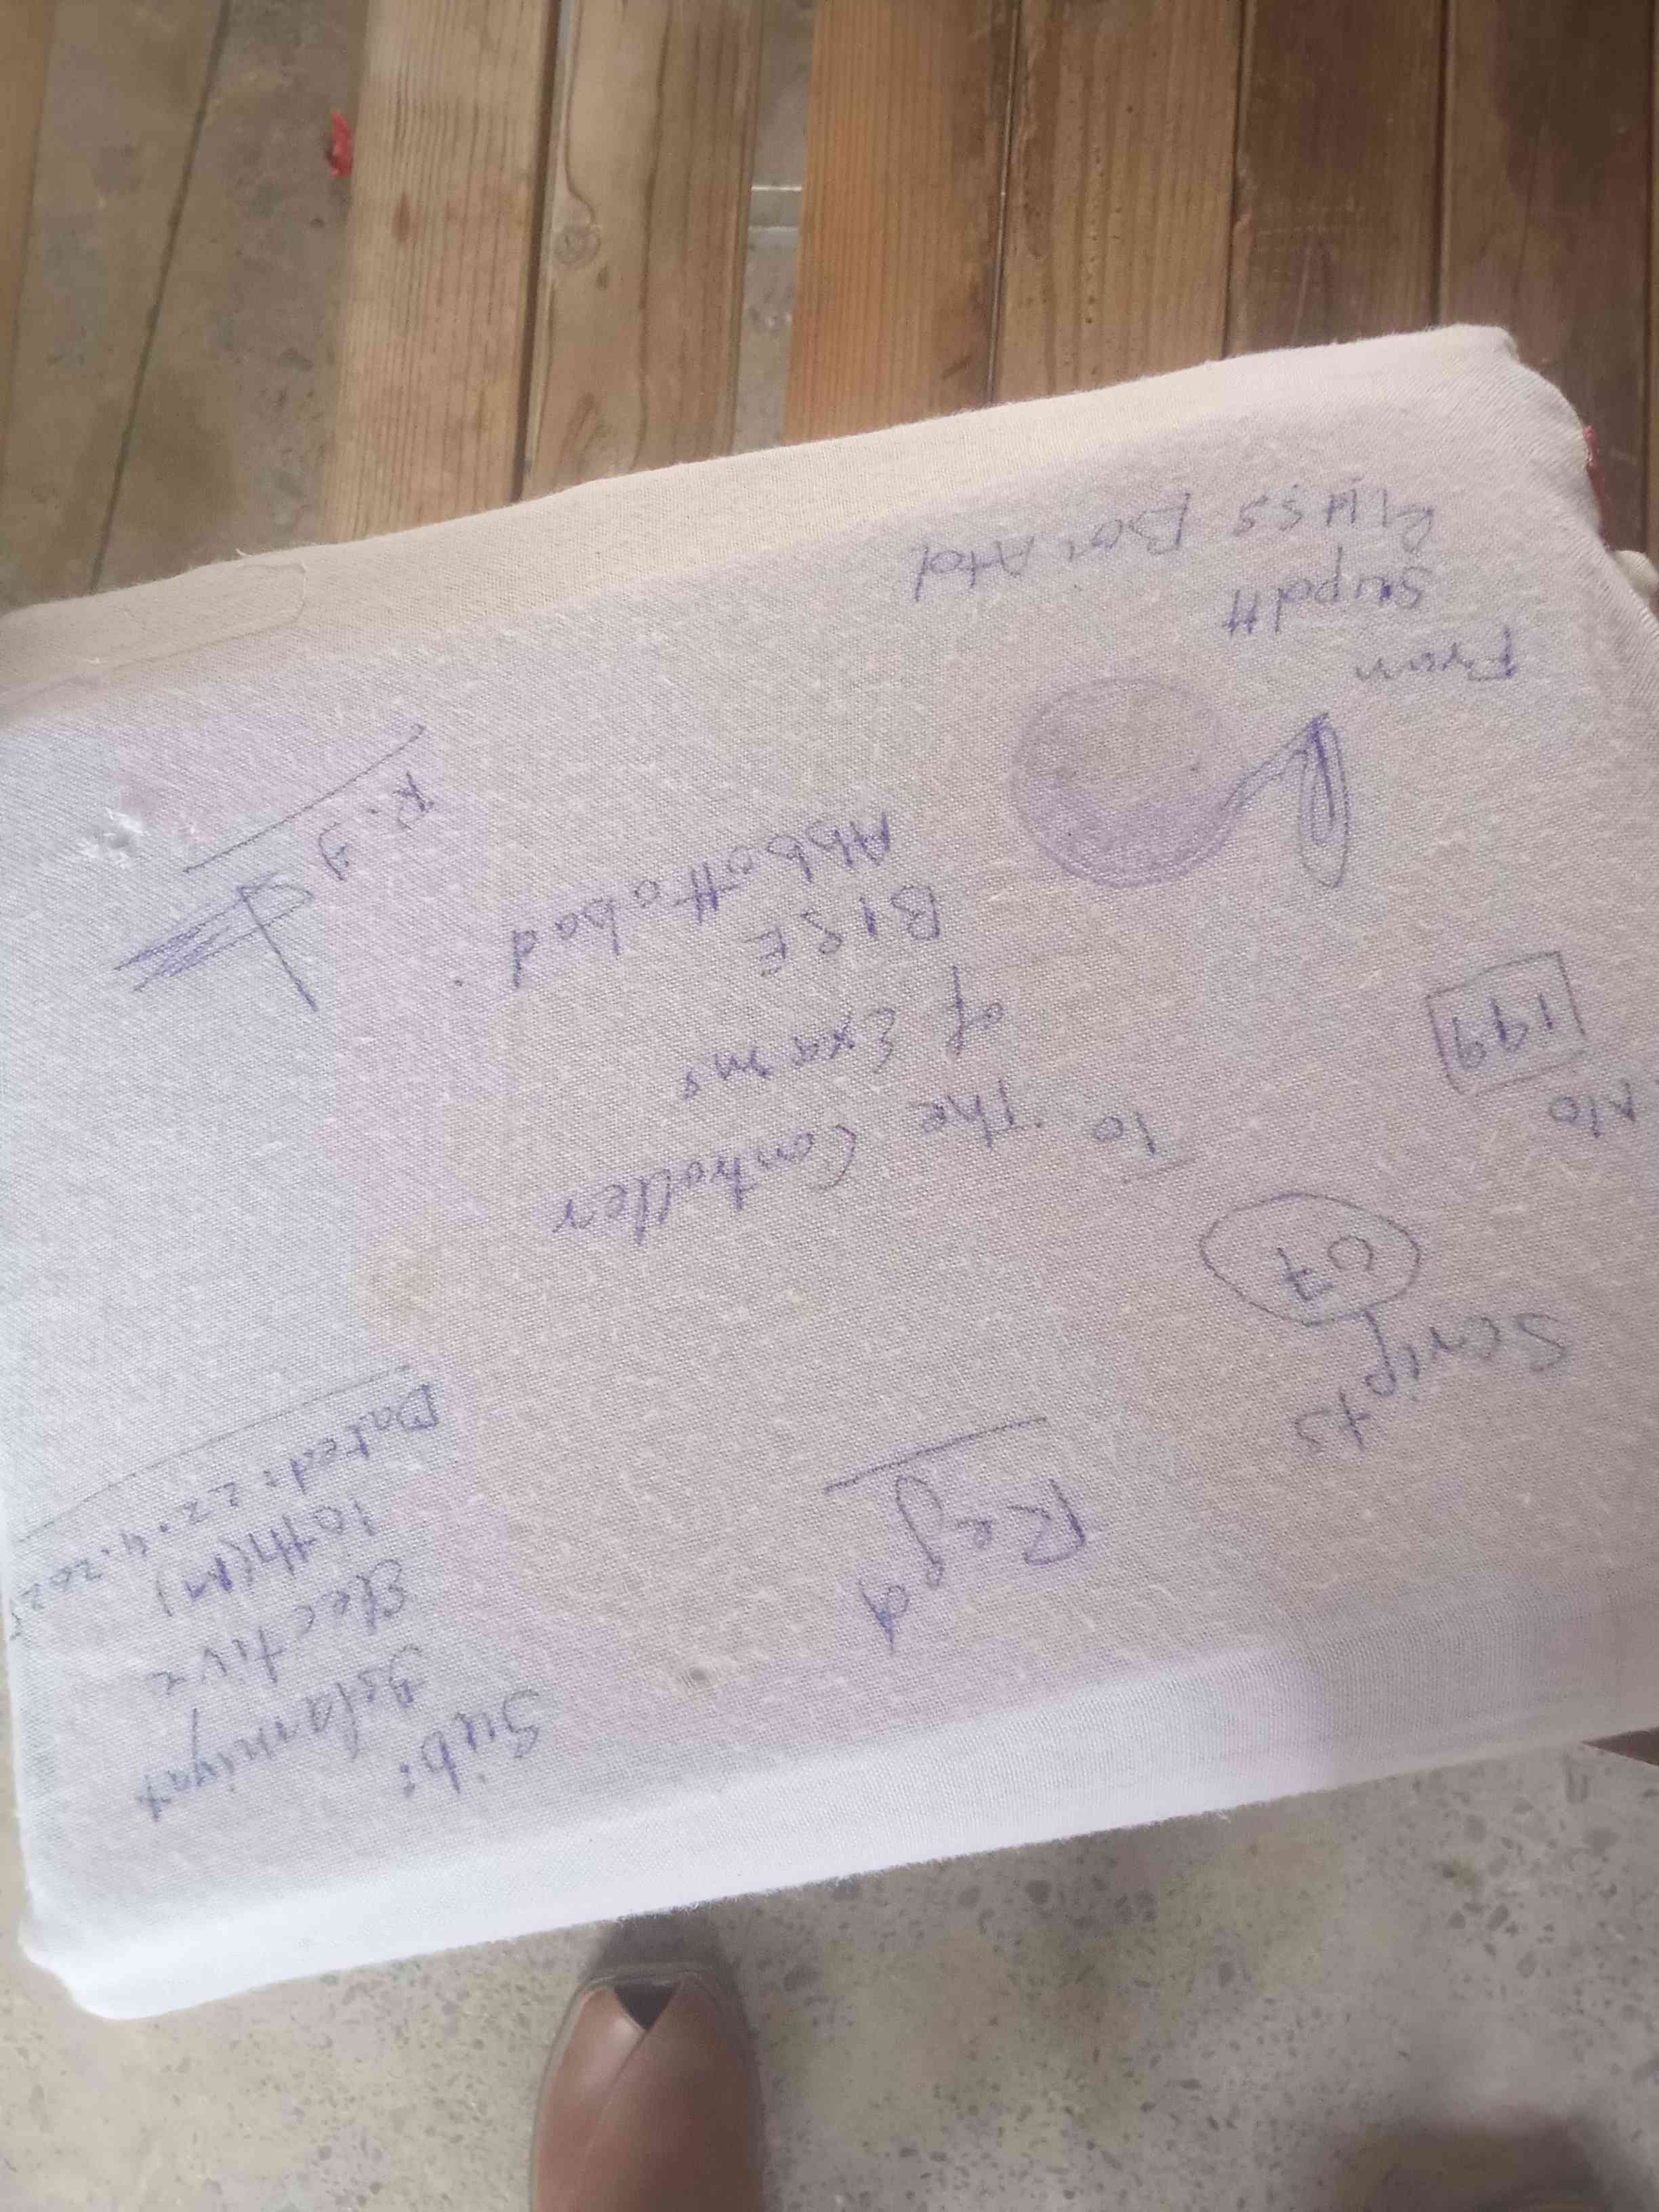 Regd
Sub:
Islamiyat
Elective
10th(A)
Dated: 22.4.2025
Scripts
67
To The Controller
of Exams
BISE
Abbottabad.
No
199
R.g
From
Supdtt
GHSS Boi Atd